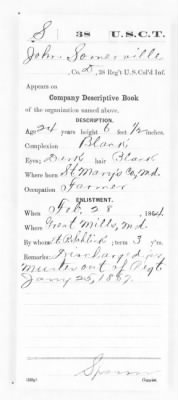 S | 38 | U.S.C.T.
John Somerville
, Co. D, 38 Reg't U.S. Col'd Inf.
Appears on
Company Descriptive Book
of the organization named above.
DESCRIPTION.
Age 24 years; height 6 feet ½ inches.
Complexion Black
Eyes; Dark hair Black
Where born St Mary's Co, Md.
Occupation Farmer
ENLISTMENT.
When Feb. 28, 1864.
Where Great Mills, Md.
By whom ; term 3 y'rs.
Remarks: Discharged on
Muster out of Regt.
Jany 25, 1867.
Copyist.